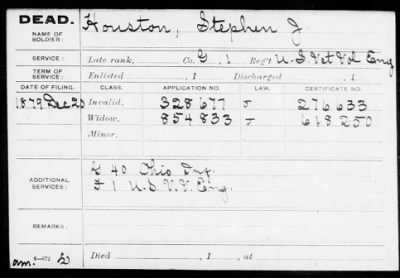 DEAD.
NAME OF SOLDIER:
Houston, Stephen J
SERVICE:
Late rank, Co. G, 1 Reg't U.S. Vet Vol Eng
TERM OF SERVICE:
Enlisted , 1 Discharged , 1
DATE OF FILING. CLASS. APPLICATION NO. LAW. CERTIFICATE NO.
1879 Dec 20 Invalid. 328677 J 276633
Widow. 854833 J 618250
Minor.
ADDITIONAL SERVICES:
G 40 Ohio Inf.
F 1 U.S.V.V. Eng.
REMARKS:
Died , 1 , at